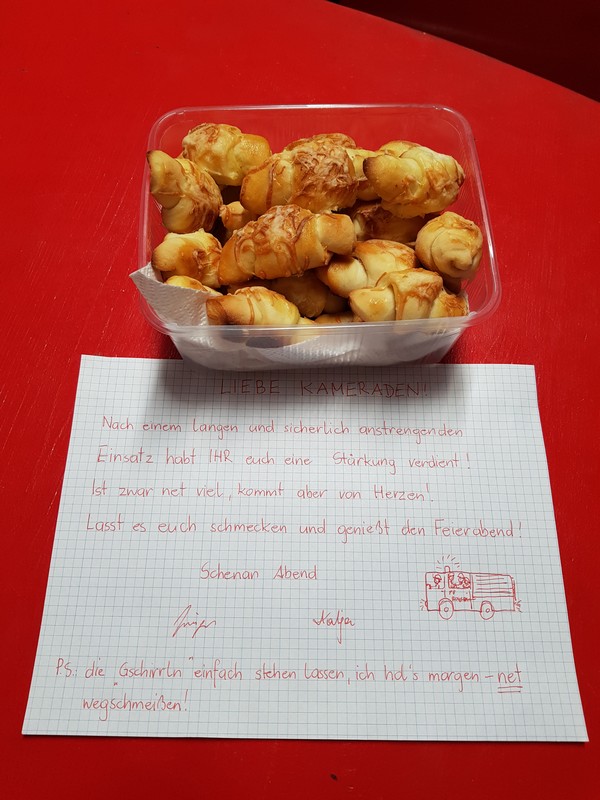 LIEBE KAMERADEN!
Nach einem langen und sicherlich anstrengenden
Einsatz habt IHR euch eine Stärkung verdient!
Ist zwar net viel, kommt aber von Herzen!
Lasst es euch schmecken und genießt den Feierabend!
Schenan Abend
Katja
PS.: die "Gschirrln" einfach stehen lassen, ich hol's morgen - net
wegschmeißen!